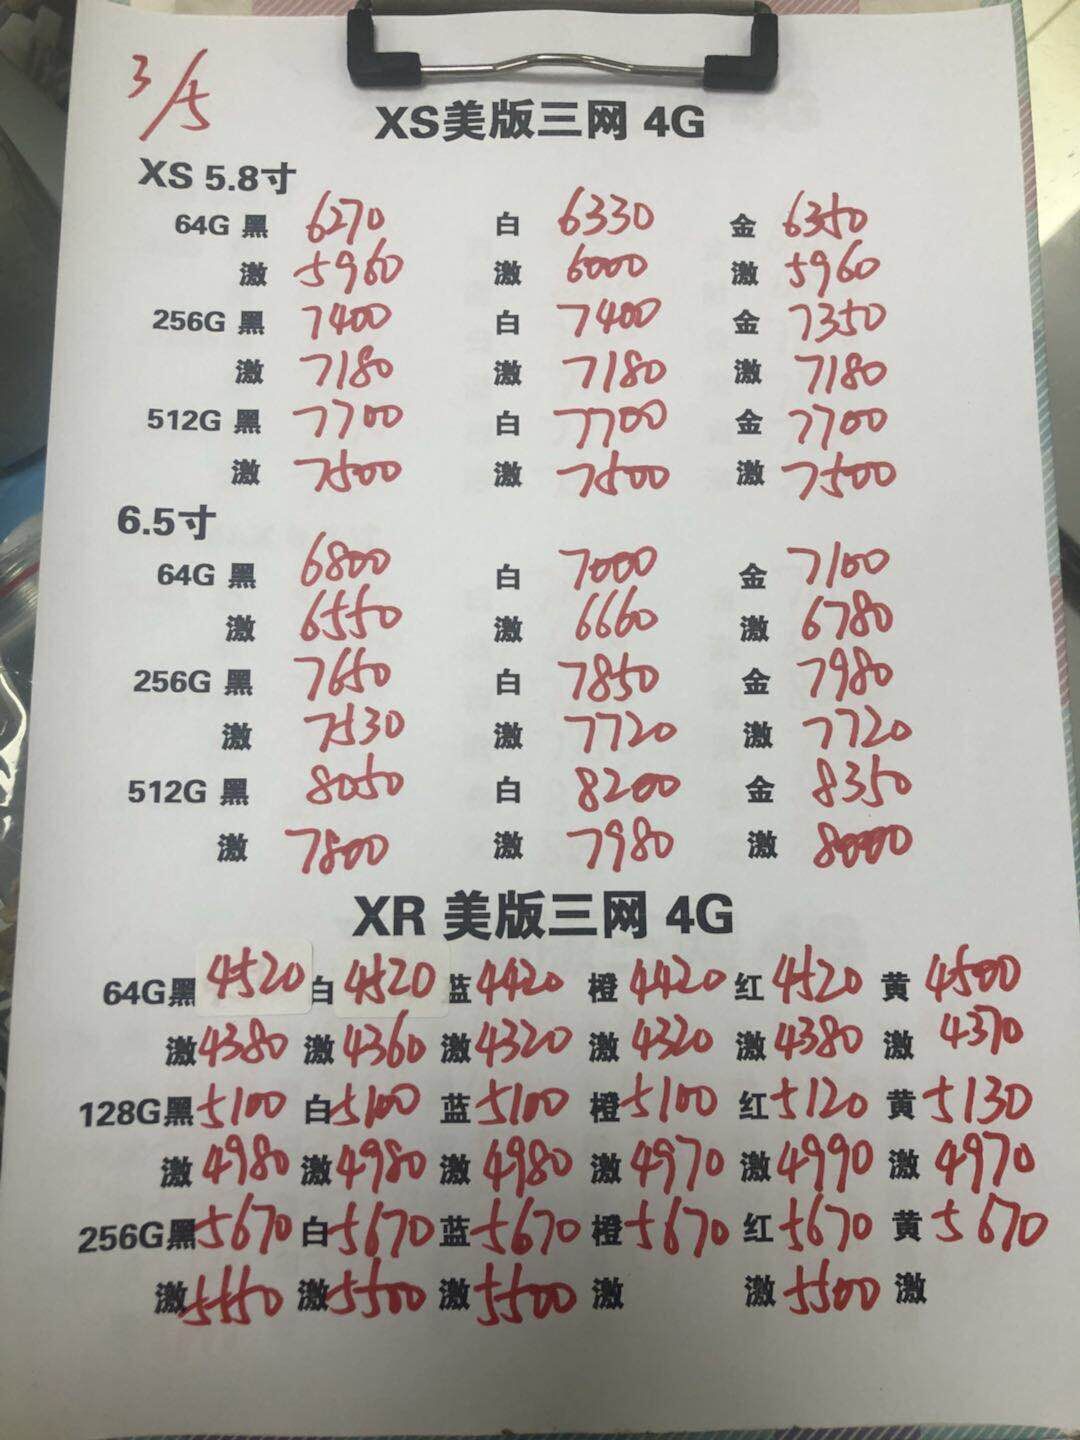 3/5
XS美版三网 4G
XS 5.8寸
64G 黑 6270 白 6330 金 6350
激 5960 激 6000 激 5960
256G 黑 7400 白 7400 金 7350
激 7180 激 7180 激 7180
512G 黑 7700 白 7700 金 7700
激 7500 激 7500 激 7500
6.5寸
64G 黑 6800 白 7000 金 7100
激 6550 激 6660 激 6780
256G 黑 7650 白 7850 金 7980
激 7530 激 7720 激 7720
512G 黑 8050 白 8200 金 8350
激 7800 激 7980 激 8000
XR 美版三网 4G
64G黑 4520 白 4520 蓝 4420 橙 4420 红 4520 黄 4500
激 4380 激 4360 激 4320 激 4320 激 4380 激 4370
128G黑 5100 白 5100 蓝 5100 橙 5100 红 5120 黄 5130
激 4980 激 4980 激 4980 激 4970 激 4990 激 4970
256G黑 5670 白 5670 蓝 5670 橙 5670 红 5670 黄 5670
激 5550 激 5500 激 5500 激 激 5500 激